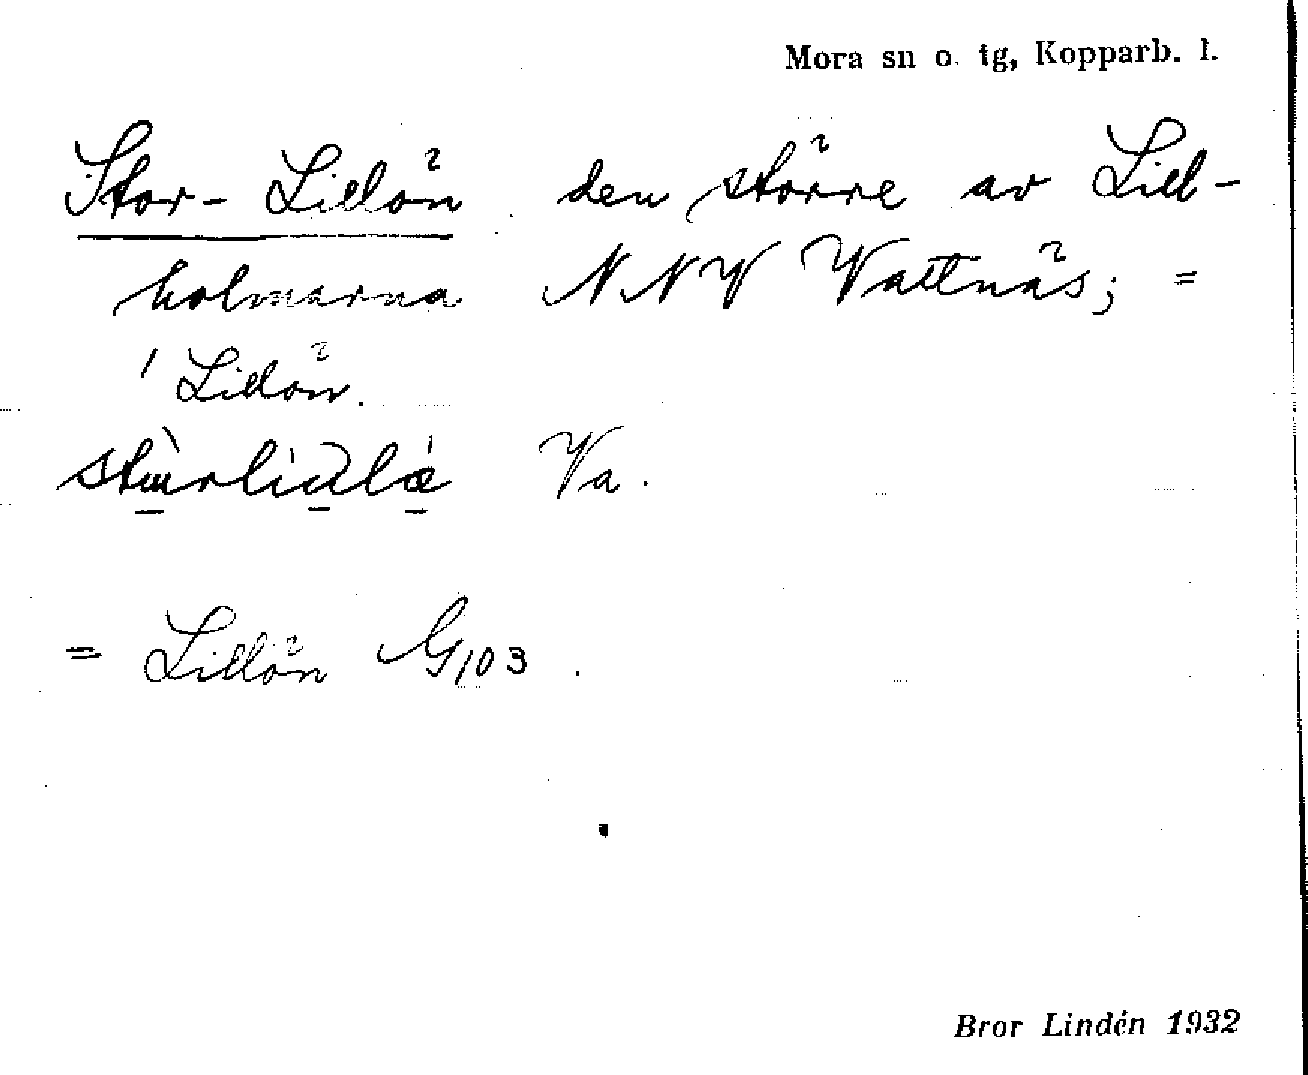 Mora sn o. tg, Kopparb. l.
Stor-Lillön den större av Lill-
holmarna NNV Vattnäs; =
1 Lillön.
Va.
= Lillön G103.
Bror Lindén 1932